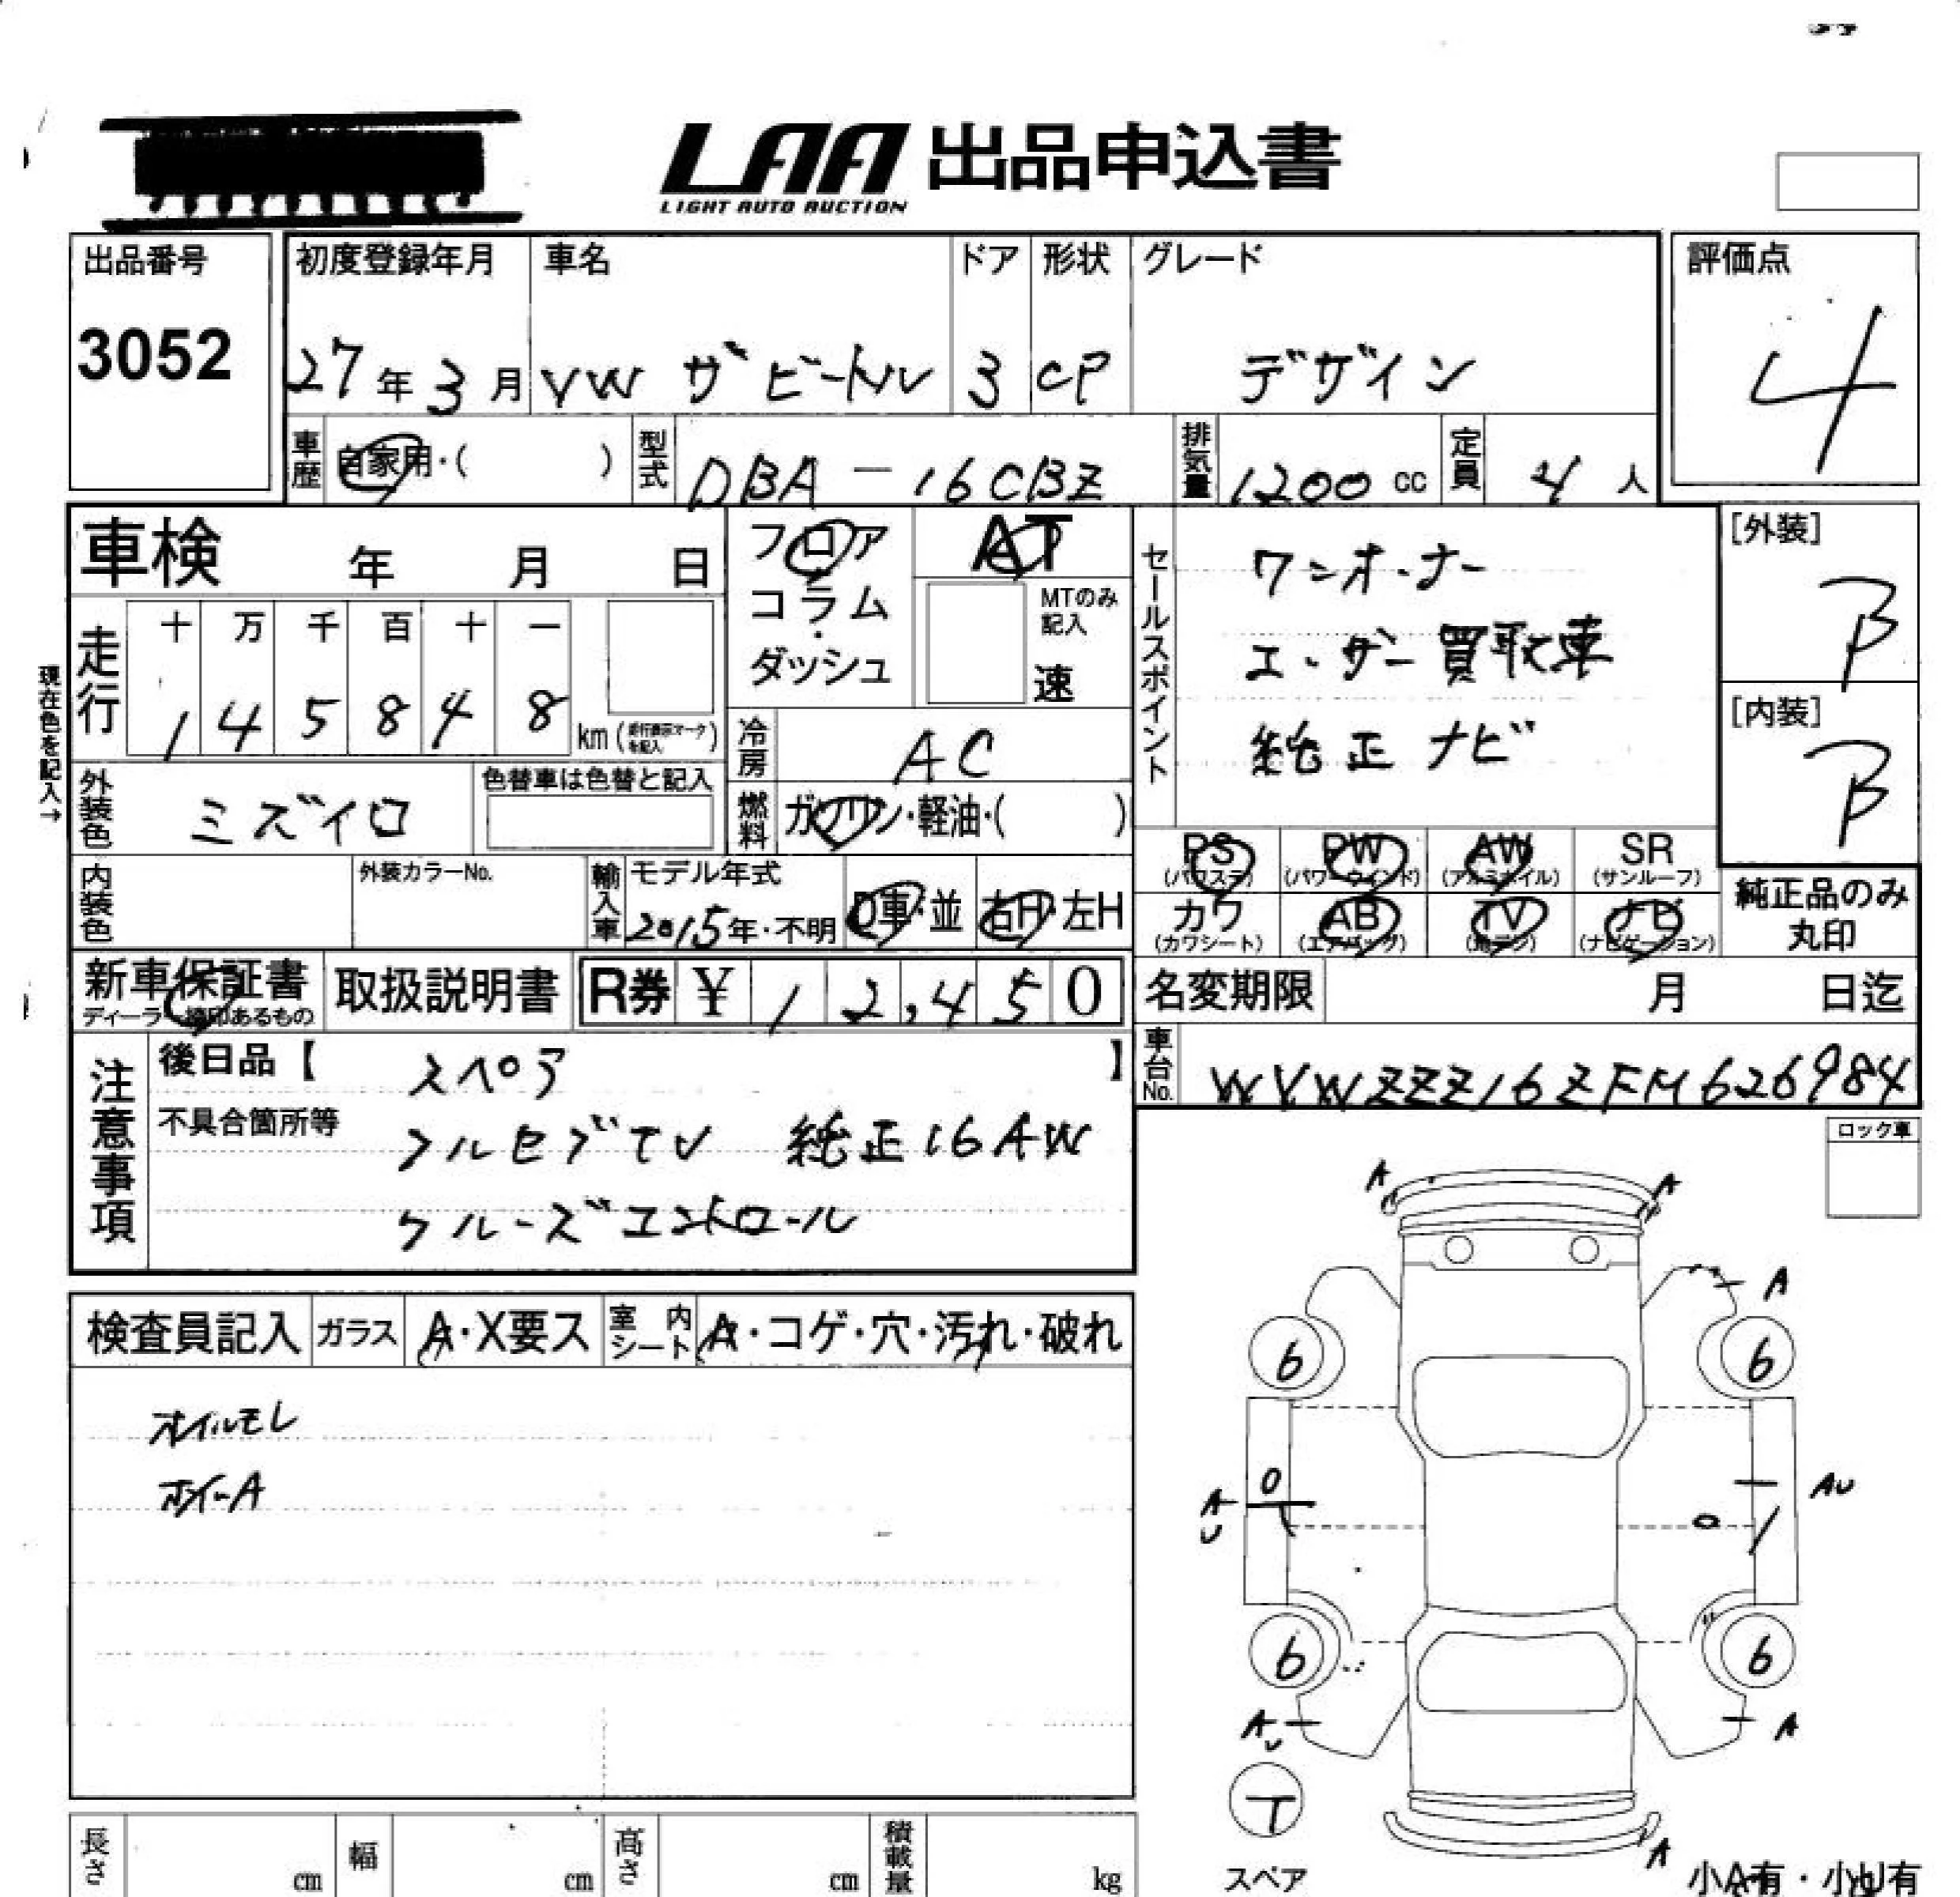 LAA 出品申込書
LIGHT AUTO AUCTION
出品番号
3052
初度登録年月 車名 ドア 形状 グレード
27年3月 VW ザビートル 3 CP デザイン
評価点
4
車歴 自家用・( ) 型式 DBA-16CBZ 排気量 1200cc 定員 4人
車検 年 月 日
フロア
コラム
ダッシュ
AT
MTのみ記入
速
セールスポイント
ワンオーナー
ユーザー買取車
純正ナビ
[外装]
B
[内装]
B
現在色を記入→
走行 十 万 千 百 十 一
1 4 5 8 4 8 km
冷房 AC
外装色 ミズイロ 色替車は色替と記入
燃料 ガソリン・軽油・( )
PS (パワステ) PW (パワーウインド) AW (アルミホイル) SR (サンルーフ)
カワ (カワシート) AB (エアバッグ) TV (地デジ) ナビ (ナビゲーション)
純正品のみ
丸印
内装色 外装カラーNo. 輸入車 モデル年式 2015年・不明 D車・並 右H・左H
新車保証書 取扱説明書 R券 ¥ 12,450
ディーラー捺印あるもの
名変期限 月 日迄
車台No. WVWZZZ16ZFM626984
注意事項
後日品【 スペア 】
不具合箇所等
フルセグTV 純正16AW
クルーズコントロール
ロック車
検査員記入 ガラス A・X要ス 室内シート A・コゲ・穴・汚れ・破れ
オイルモレ
ホイールA
A A
A
6 6
0
A
U
AU
6 6
AU A
T
スペア
A
小A有・小U有
長さ cm 幅 cm 高さ cm 積載量 kg